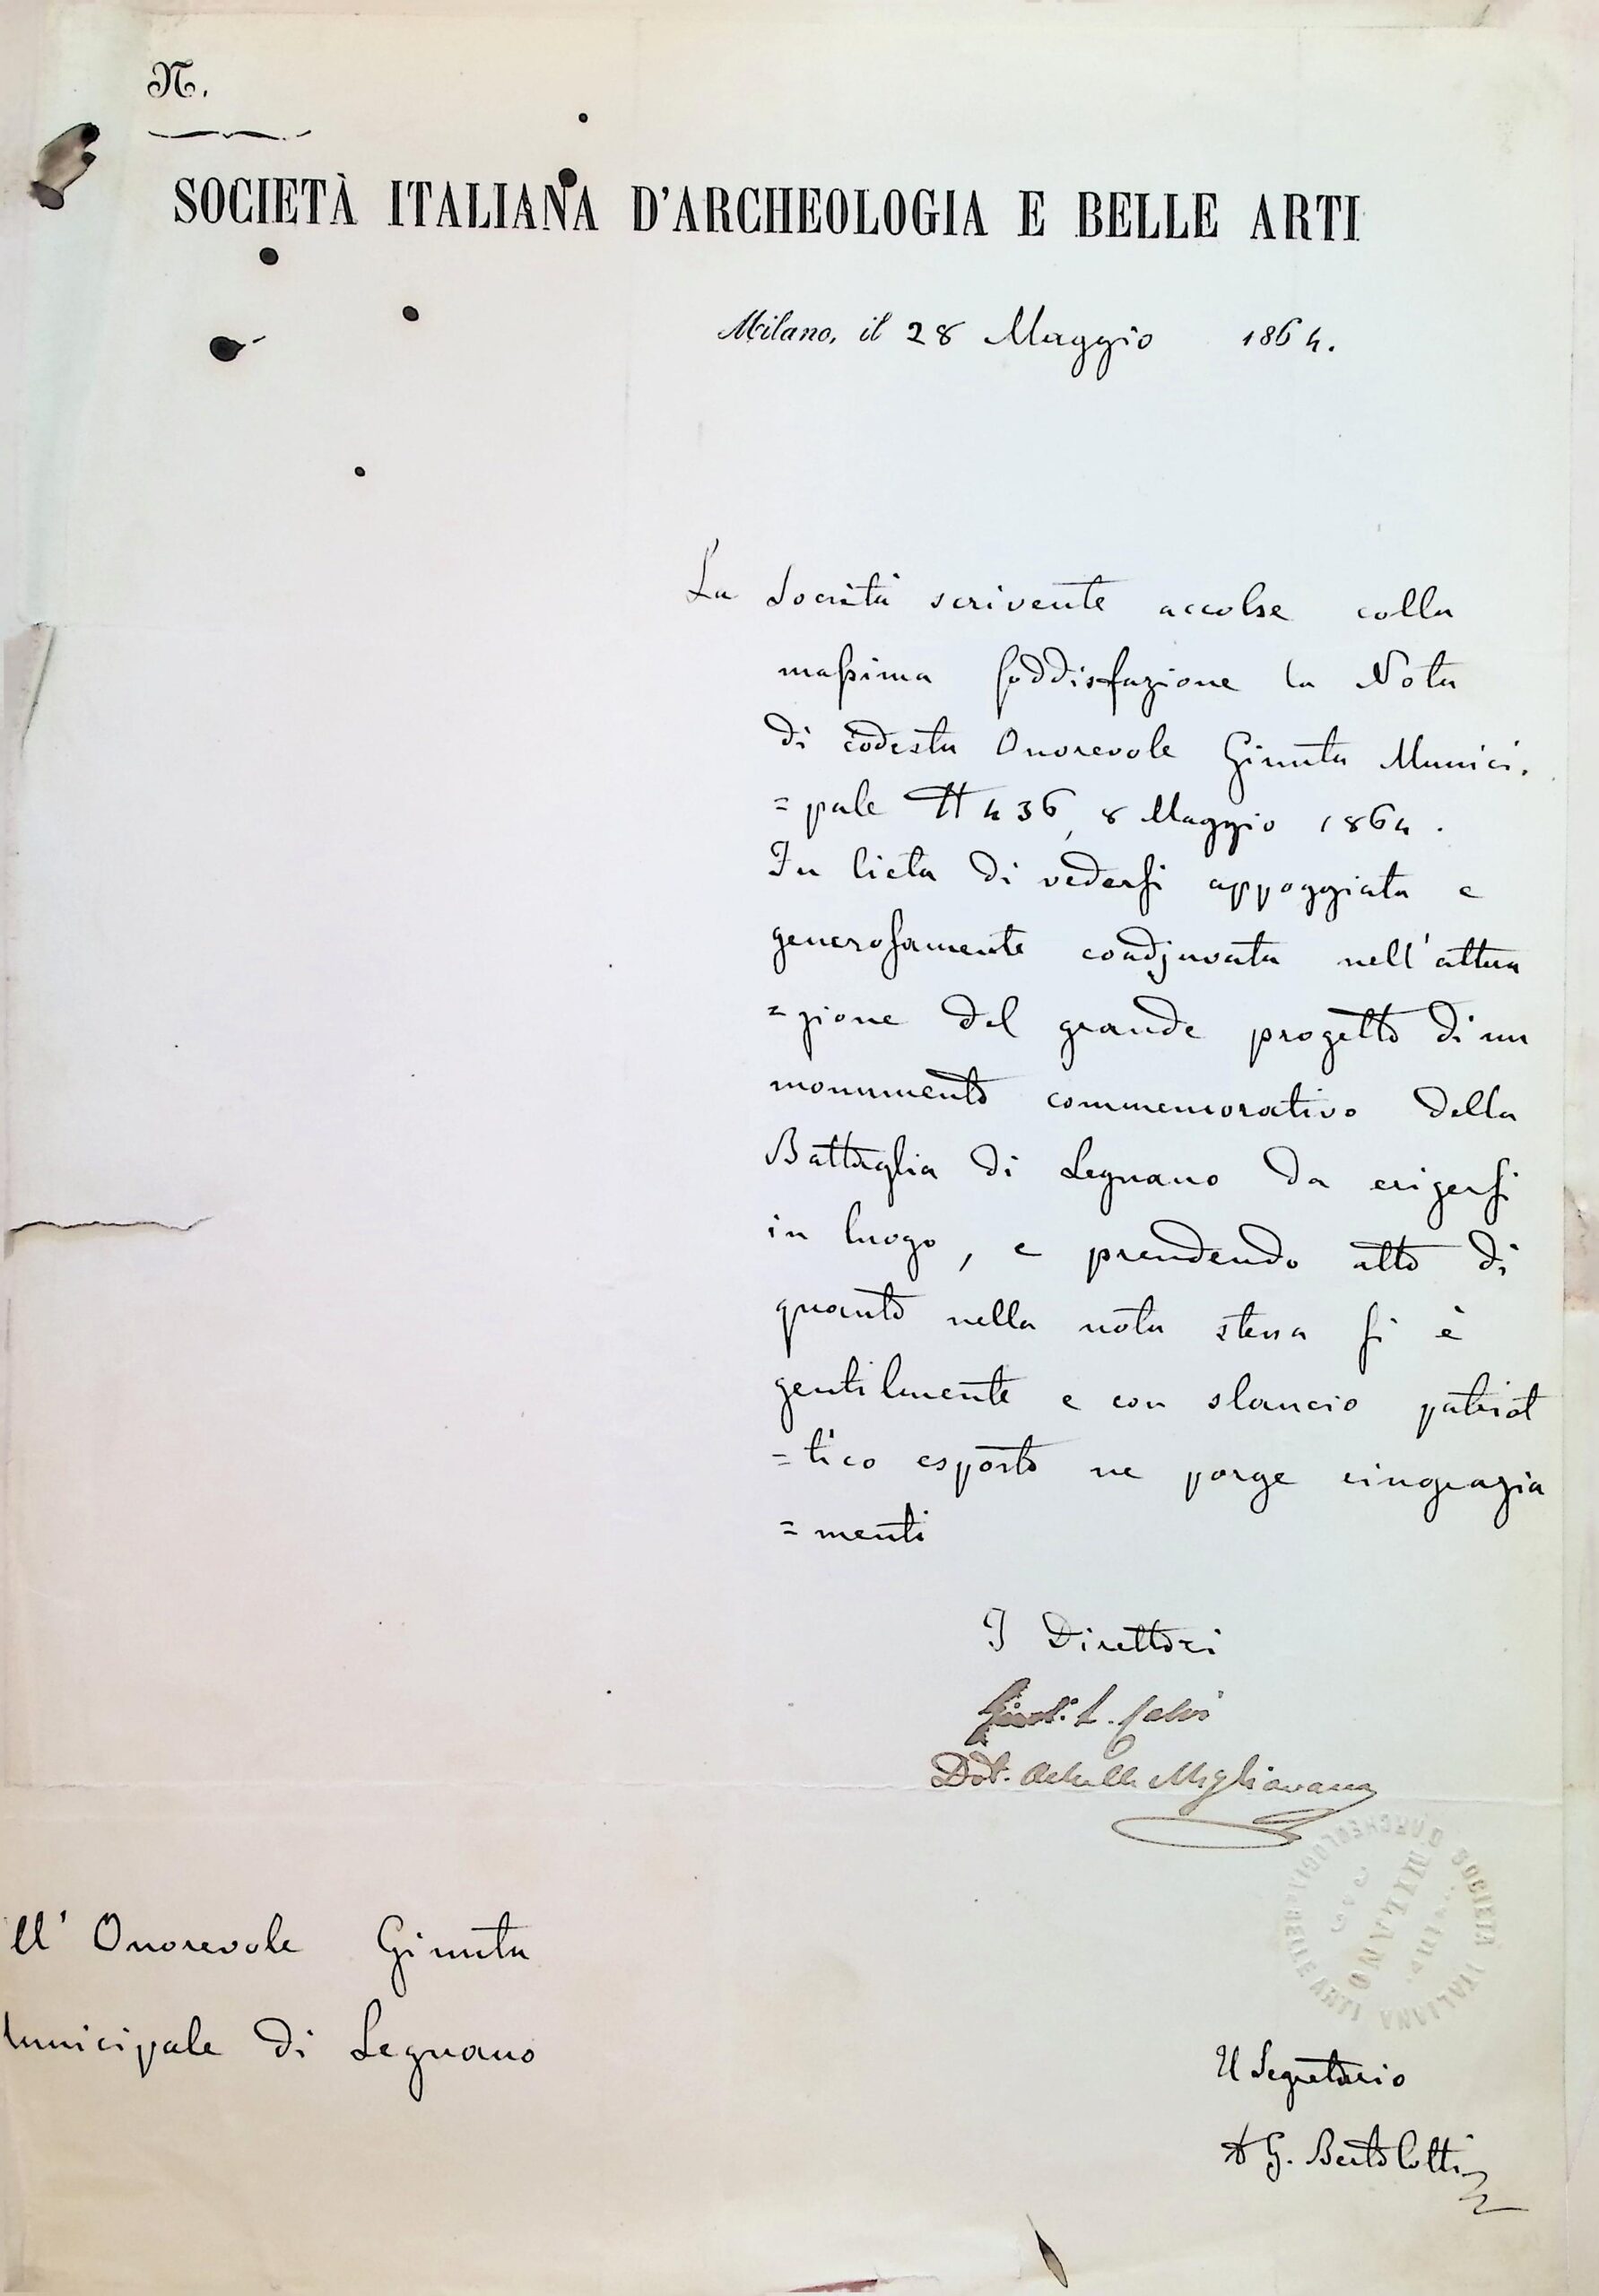 N.
SOCIETÀ ITALIANA D'ARCHEOLOGIA E BELLE ARTI
Milano, il 28 Maggio 1864.
La Società scrivente accolse colla
massima soddisfazione la Nota
di codesta Onorevole Giunta Munici.
=pale N 436, 8 Maggio 1864.
Fu lieta di vedersi appoggiata e
generosamente coadjuvata nell'attua
=zione del grande progetto di un
monumento commemorativo della
Battaglia di Legnano da erigersi
in luogo, e prendendo atto di
quanto nella nota stessa si è
gentilmente e con slancio patriot
=tico esposto ne porge ringrazia
=menti
I Direttori
L. Calvi
Dot. Achille Migliavacca
SOCIETÀ ITALIANA D'ARCHEOLOGIA E BELLE ARTI
MILANO
ll' Onorevole Giunta
unicipale di Legnano
Il Segretario
A G. Bertolotti